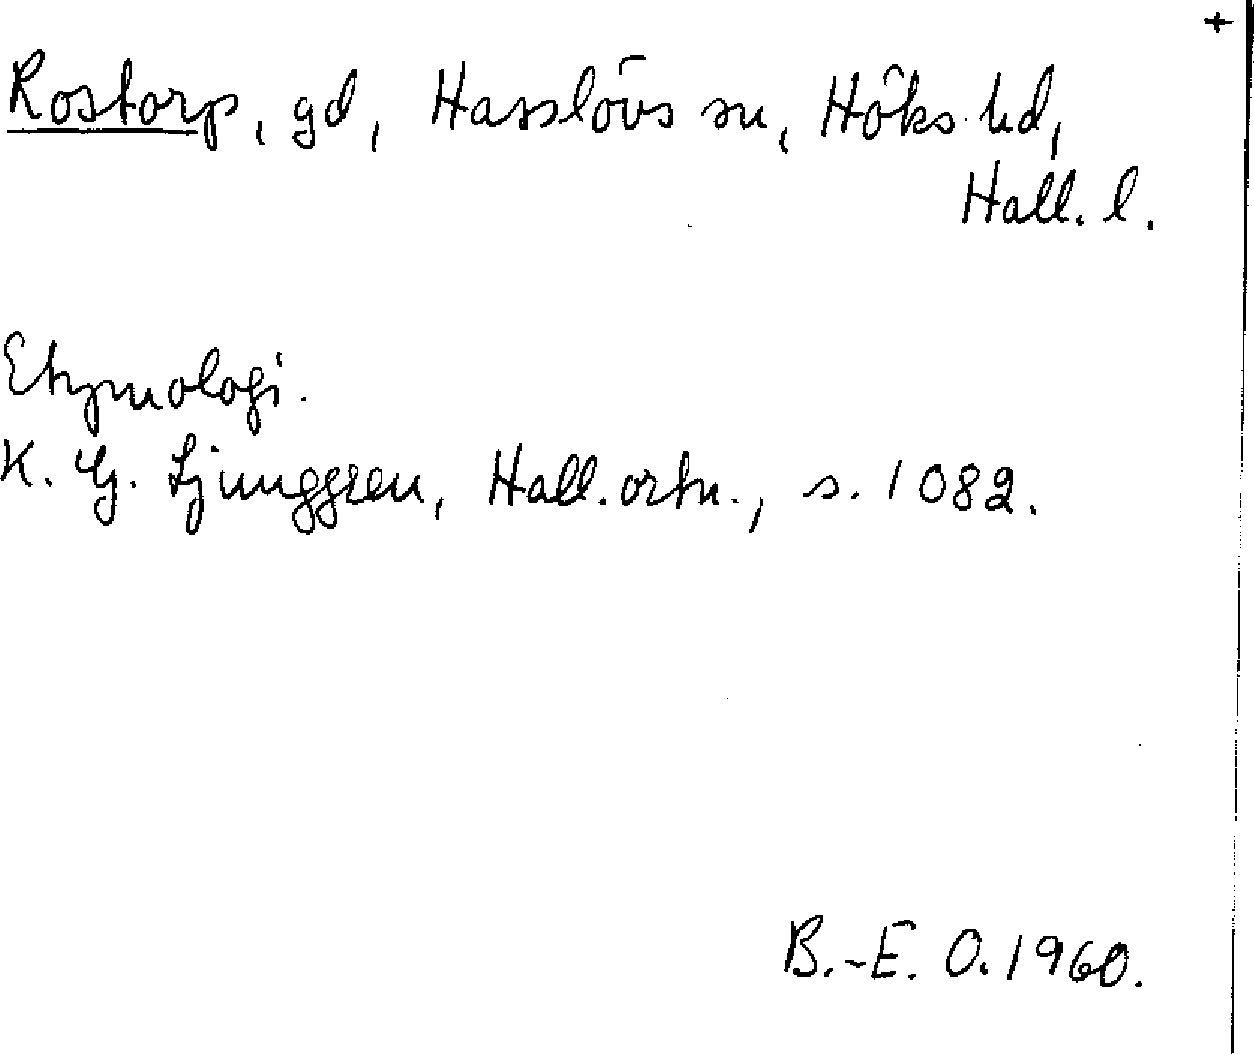 +
Rostorp, gd, Hasslövs sn, Höks hd,
Hall. l.
Etymologi.
K. G. Ljunggren, Hall. ortn., s. 1082.
B.-E. O. 1960.